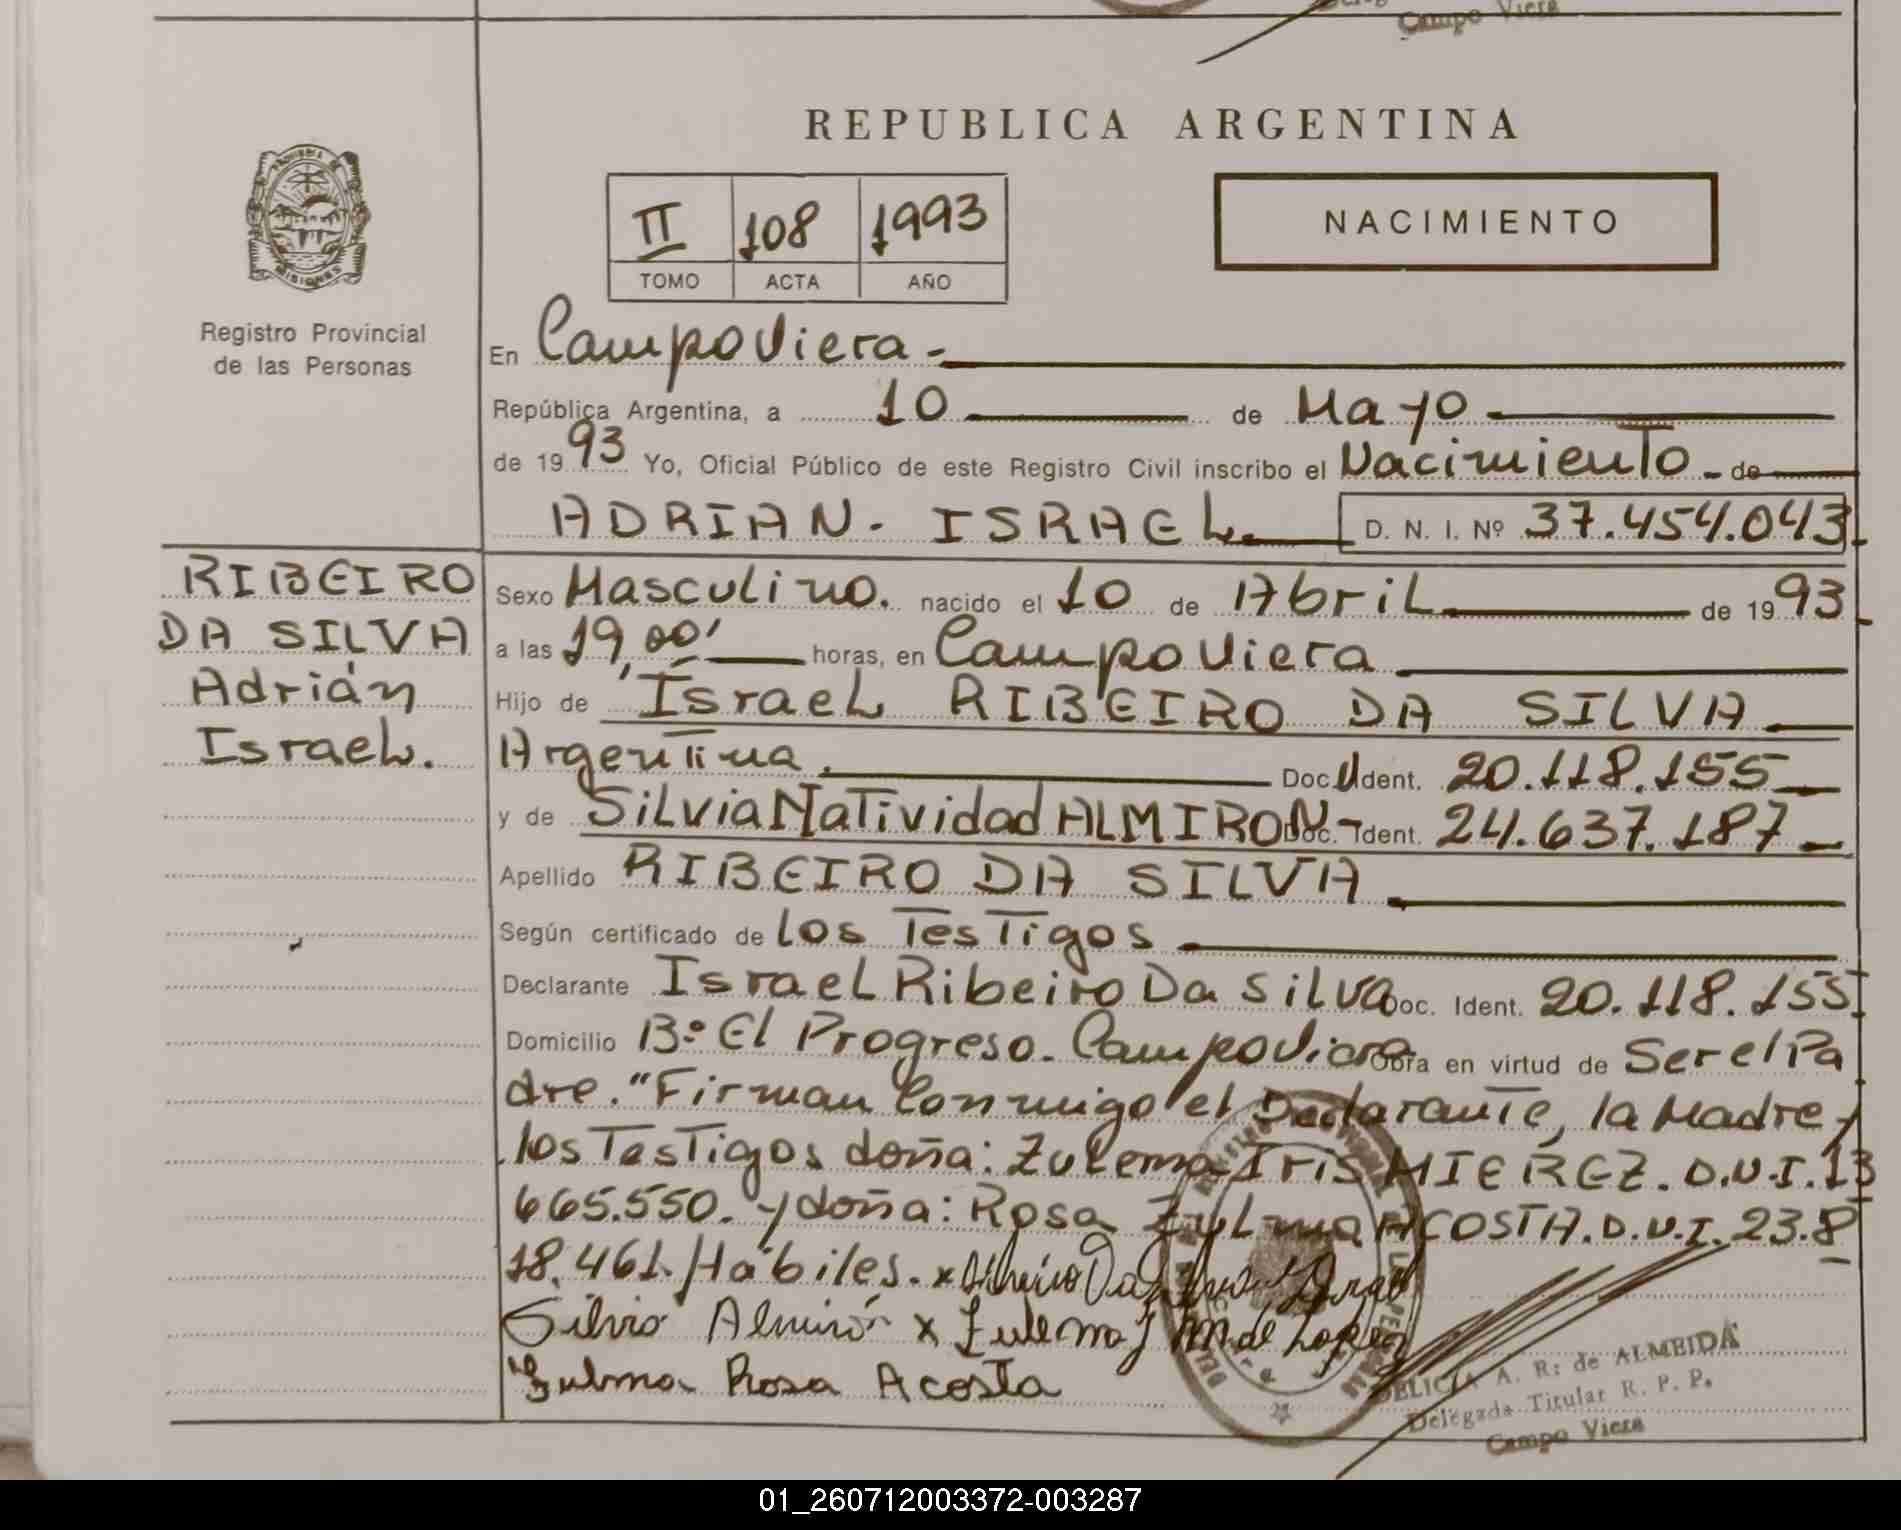 Campo Viera
REPUBLICA ARGENTINA
II 108 1993
TOMO ACTA AÑO
NACIMIENTO
PROVINCIA DE
MISIONES
Registro Provincial
de las Personas
En Campo Viera -
República Argentina, a 10 de Mayo
de 1993 Yo, Oficial Público de este Registro Civil inscribo el Nacimiento - de
ADRIAN - ISRAEL D. N. I. Nº 37.454.043
RIBEIRO
DA SILVA
Adrián
Israel.
Sexo Masculino. nacido el 10 de Abril de 1993
a las 19,00' horas, en Campo Viera
Hijo de Israel RIBEIRO DA SILVA
Argentina. Doc. Ident. 20.118.155
y de Silvia Natividad ALMIRON - Doc. Ident. 24.637.187
Apellido RIBEIRO DA SILVA
Según certificado de los Testigos
Declarante Israel Ribeiro Da Silva Doc. Ident. 20.118.155
Domicilio Bº El Progreso - Campo Viera Obra en virtud de Ser el Pa
dre. "Firman Conmigo el Declarante, la Madre y
los Testigos doña: Zulema Iris MIEREZ. D.N.I. 13
665.550. y doña: Rosa Zulma ACOSTA. D.N.I. 23.8
18.461. Hábiles. x
Silvia Almirón x Zulema J M de Lopez
Zulma Rosa Acosta
DELICIA A. R: de ALMEIDA
Delegada Titular R. P. P.
Campo Viera
01_260712003372-003287